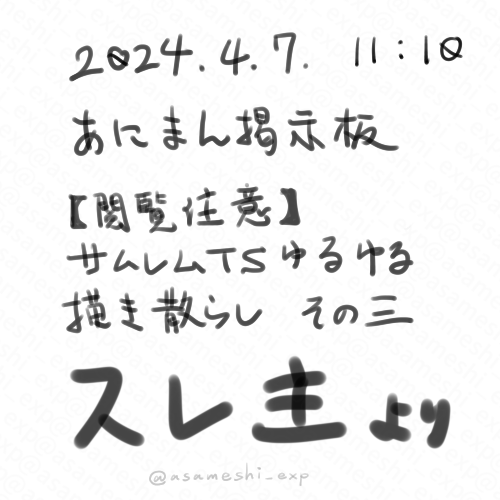 2024.4.7. 11:10
あにまん掲示板
【閲覧注意】
サムレムTSゆるゆる
描き散らし その三
スレ主より
@asameshi_exp